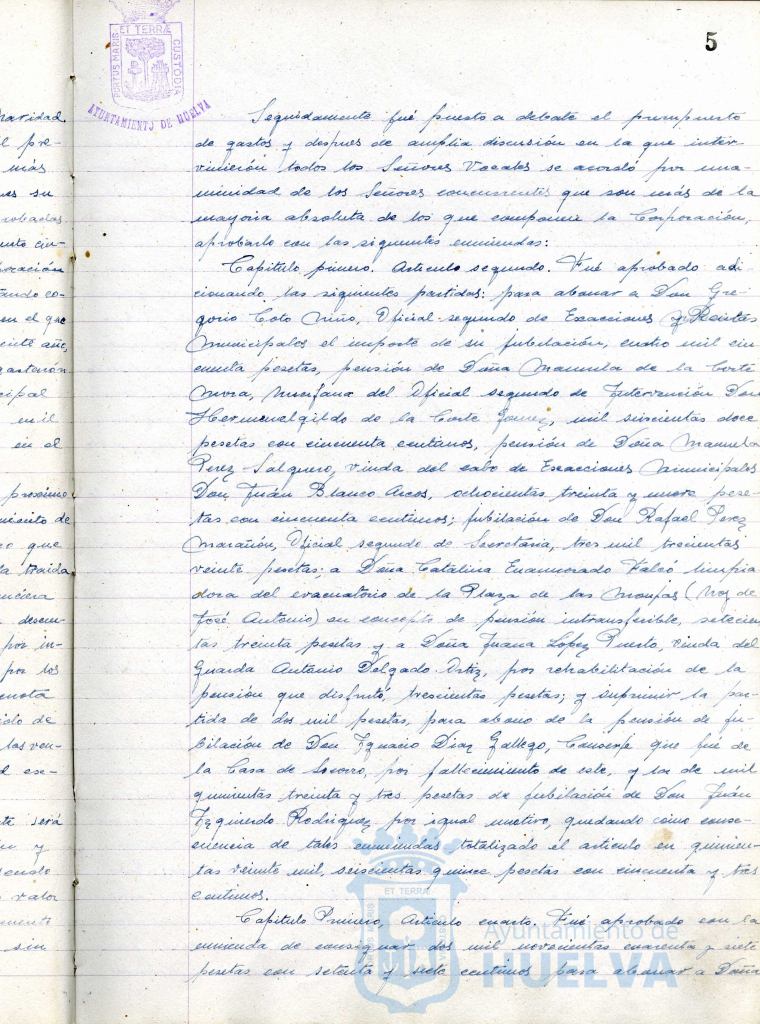 5
PORTUS MARIS
ET TERRÆ
CUSTODIA
AYUNTAMIENTO DE HUELVA
Seguidamente fué puesto a debate el presupuesto
de gastos y despues de amplia discusión en la que inter-
vinieron todos los Señores Vocales se acordó por una-
nimidad de los Señores concurrentes que son más de la
mayoria absoluta de los que componen la Corporación,
aprobarlo con las siguientes enmiendas:
Capitulo primero. Articulo segundo. Fué aprobado adi-
cionando las siguientes partidas: para abonar a Don Gre-
gorio Coto Niño, Oficial segundo de Exacciones y Rentas
Municipales el importe de su jubilación, cuatro mil cin
cuenta pesetas, pensión de Doña Manuela de la Corte
Mora, huerfana del Oficial segundo de Intervención Don
Hermenelgildo de la Corte Gomez, mil seiscientas doce
pesetas con cincuenta centimos, pensión de Doña Manuela
Perez Salguero, viuda del cabo de Exacciones Municipales
Don Juán Blanco Arcos, ochocientas treinta y nueve pese-
tas con cincuenta centimos; jubilación de Don Rafael Perez
Marañón, Oficial segundo de Secretaria, tres mil trescientas
veinte pesetas; a Doña Catalina Enamorado Falcó limpia
dora del evacuatorio de la Plaza de las Monjas (hoy de
José Antonio) en concepto de pensión intransferible, setecien
tas treinta pesetas y a Doña Juana López Puerto, viuda del
Guarda Antonio Delgado Ortiz, por rehabilitación de la
pensión que disfrutó, trescientas pesetas; y suprimir la par-
tida de dos mil pesetas, para abono de la pensión de ju-
bilación de Don Ignacio Diaz Gallego, Conserje que fué de
la Casa de Socorro, por fallecimiento de este, y la de mil
quinientas treinta y tres pesetas de jubilación de Don Juán
Izquierdo Rodriguez por igual motivo, quedando como conse-
cuencia de tales enmiendas totalizado el articulo en quinien-
tas veinte mil, seiscientas quince pesetas con cincuenta y tres
centimos.
Capitulo Primero, Articulo cuarto. Fué aprobado con la
enmienda de consignar dos mil novecientas cuarenta y siete
pesetas con setenta y siete centimos para abonar a Doña
ET TERRÆ
Ayuntamiento de
HUELVA